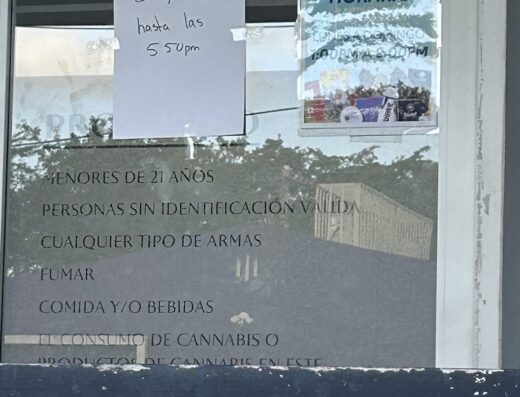 hasta las
5 50pm
HORARIO
PROHIBIDO
MENORES DE 21 AÑOS
PERSONAS SIN IDENTIFICACIÓN VALIDA
CUALQUIER TIPO DE ARMAS
FUMAR
COMIDA Y/O BEBIDAS
EL CONSUMO DE CANNABIS O
PRODUCTOS DE CANNABIS EN ESTE